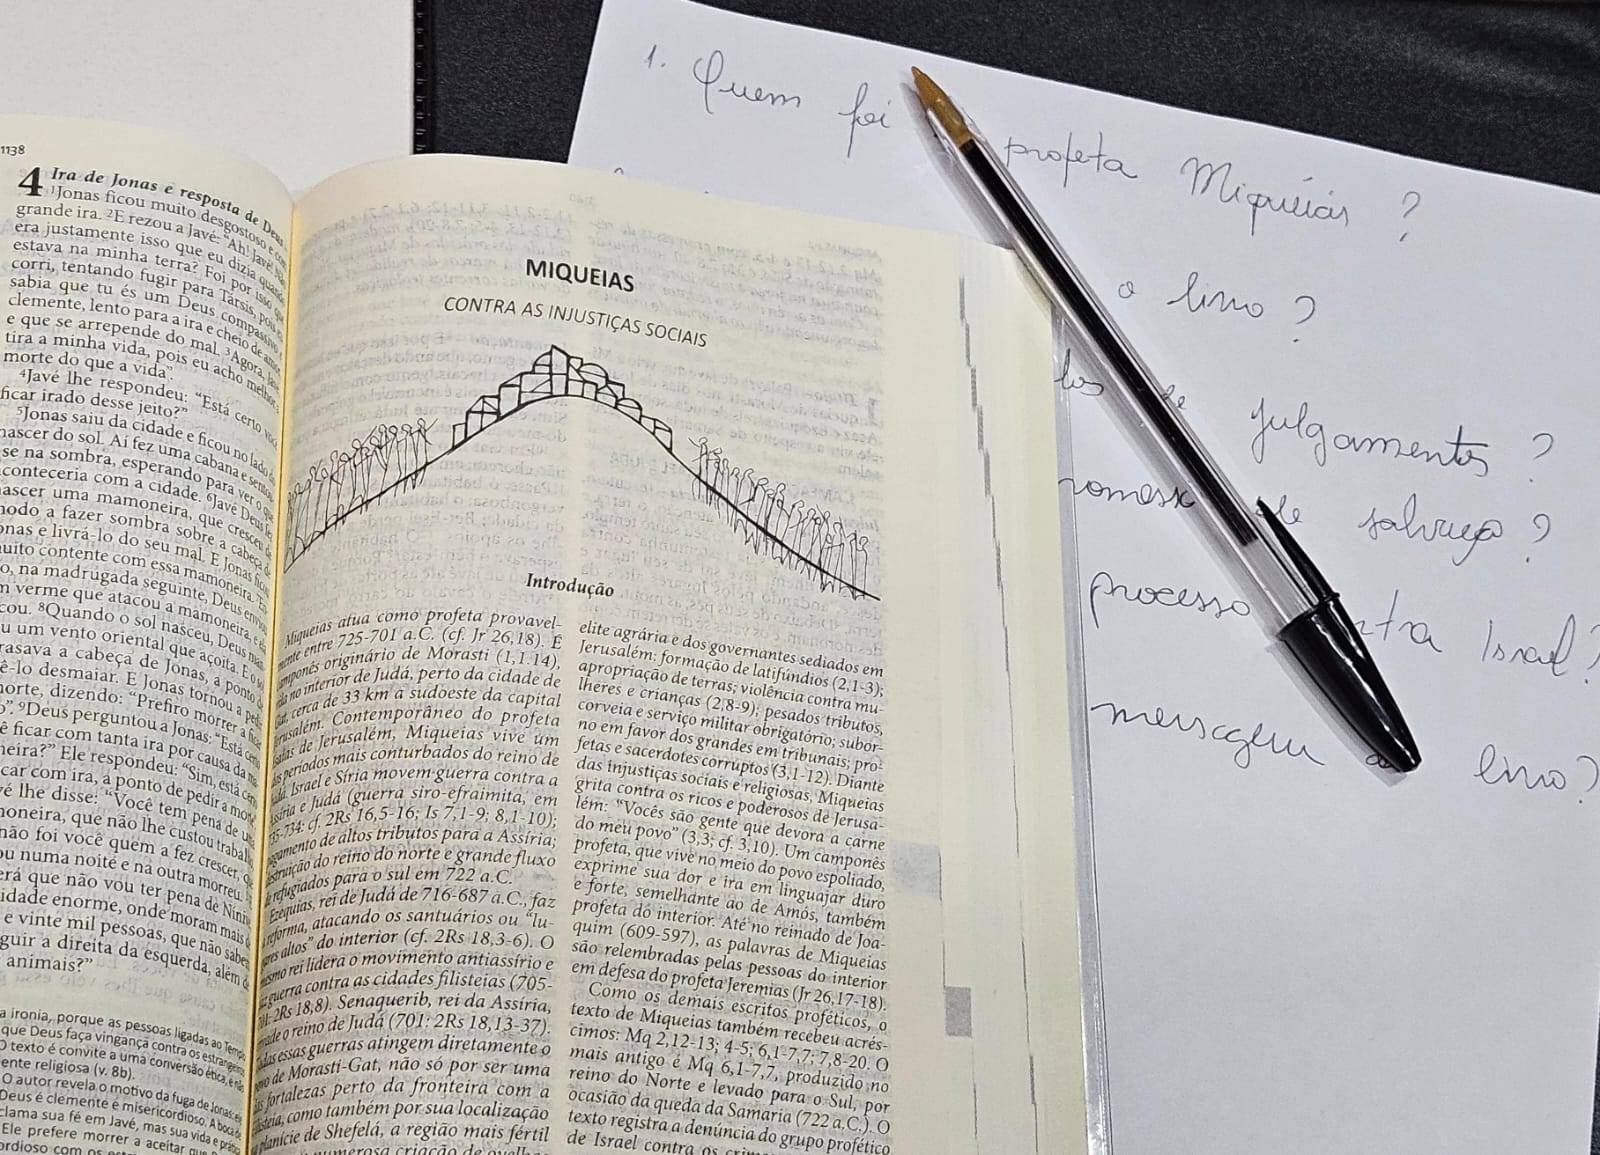 1138
4 Ira de Jonas e resposta de Deus
¹Jonas ficou muito desgostoso e com
grande ira. ²E rezou a Javé: "Ah! Javé! Não
era justamente isso que eu dizia quando
estava na minha terra? Foi por isso que
corri, tentando fugir para Társis, pois eu
sabia que tu és um Deus compassivo e
clemente, lento para a ira e cheio de amor
e que se arrepende do mal. ³Agora, Javé
tira a minha vida, pois eu acho melhor a
morte do que a vida".
⁴Javé lhe respondeu: "Está certo você
ficar irado desse jeito?"
⁵Jonas saiu da cidade e ficou no lado do
nascer do sol. Aí fez uma cabana e sentou-
se na sombra, esperando para ver o que
conteceria com a cidade. ⁶Javé Deus fez
nascer uma mamoneira, que cresceu de
modo a fazer sombra sobre a cabeça de
onas e livrá-lo do seu mal. E Jonas ficou
uito contente com essa mamoneira.
o, na madrugada seguinte, Deus enviou
m verme que atacou a mamoneira, e ela
cou. ⁸Quando o sol nasceu, Deus man
u um vento oriental que açoita. E o sol
rasava a cabeça de Jonas, a ponto de
ê-lo desmaiar. E Jonas tornou a pedir
orte, dizendo: "Prefiro morrer a ficar
". ⁹Deus perguntou a Jonas: "Está certo
ê ficar com tanta ira por causa da ma
neira?" Ele respondeu: "Sim, está certo
car com ira, a ponto de pedir a morte
vé lhe disse: "Você tem pena de uma
moneira, que não lhe custou trabalho
não foi você quem a fez crescer, que
ou numa noite e na outra morreu.
erá que não vou ter pena de Nínive
idade enorme, onde moram mais de
e vinte mil pessoas, que não sabem
guir a direita da esquerda, além de
animais?"
a ironia, porque as pessoas ligadas ao Templo
que Deus faça vingança contra os estrangeiros
O texto é convite a uma conversão ética, e não
ente religiosa (v. 8b).
O autor revela o motivo da fuga de Jonas:
Deus é clemente e misericordioso. A boca
clama sua fé em Javé, mas sua vida e prática
Ele prefere morrer a aceitar que
MIQUEIAS
CONTRA AS INJUSTIÇAS SOCIAIS
Introdução
Miqueias atua como profeta provavel-
mente entre 725-701 a.C. (cf. Jr 26,18). É
camponês originário de Morasti (1,1.14),
vila no interior de Judá, perto da cidade de
Gat, cerca de 33 km a sudoeste da capital
Jerusalém. Contemporâneo do profeta
Isaías de Jerusalém, Miqueias vive um
dos períodos mais conturbados do reino de
Judá. Israel e Síria movem guerra contra a
Assíria e Judá (guerra siro-efraimita, em
735-734: cf. 2Rs 16,5-16; Is 7,1-9; 8,1-10);
pagamento de altos tributos para a Assíria;
destruição do reino do norte e grande fluxo
de refugiados para o sul em 722 a.C.
Ezequias, rei de Judá de 716-687 a.C., faz
a reforma, atacando os santuários ou "lu-
gares altos" do interior (cf. 2Rs 18,3-6). O
mesmo rei lidera o movimento antiassírio e
faz guerra contra as cidades filisteias (705-
701: 2Rs 18,8). Senaquerib, rei da Assíria,
invade o reino de Judá (701: 2Rs 18,13-37).
Todas essas guerras atingem diretamente o
povo de Morasti-Gat, não só por ser uma
das fortalezas perto da fronteira com a
Filisteia, como também por sua localização
planície de Shefelá, a região mais fértil
numerosa criação de ovelhas
elite agrária e dos governantes sediados em
Jerusalém: formação de latifúndios (2,1-3);
apropriação de terras; violência contra mu-
lheres e crianças (2,8-9); pesados tributos,
corveia e serviço militar obrigatório; subor-
no em favor dos grandes em tribunais; pro-
fetas e sacerdotes corruptos (3,1-12). Diante
das injustiças sociais e religiosas, Miqueias
grita contra os ricos e poderosos de Jerusa-
lém: "Vocês são gente que devora a carne
do meu povo" (3,3; cf. 3,10). Um camponês
profeta, que vive no meio do povo espoliado,
exprime sua dor e ira em linguajar duro
e forte, semelhante ao de Amós, também
profeta do interior. Até no reinado de Joa-
quim (609-597), as palavras de Miqueias
são relembradas pelas pessoas do interior
em defesa do profeta Jeremias (Jr 26,17-18).
Como os demais escritos proféticos, o
texto de Miqueias também recebeu acrés-
cimos: Mq 2,12-13; 4-5; 6,1-7,7; 7,8-20. O
mais antigo é Mq 6,1-7,7, produzido no
reino do Norte e levado para o Sul, por
ocasião da queda da Samaria (722 a.C.). O
texto registra a denúncia do grupo profético
de Israel contra os
1. Quem foi profeta Miquéias ?
o livro ?
de julgamentos ?
romessa de salvação ?
processo ntra Israel ?
mensagem livro ?